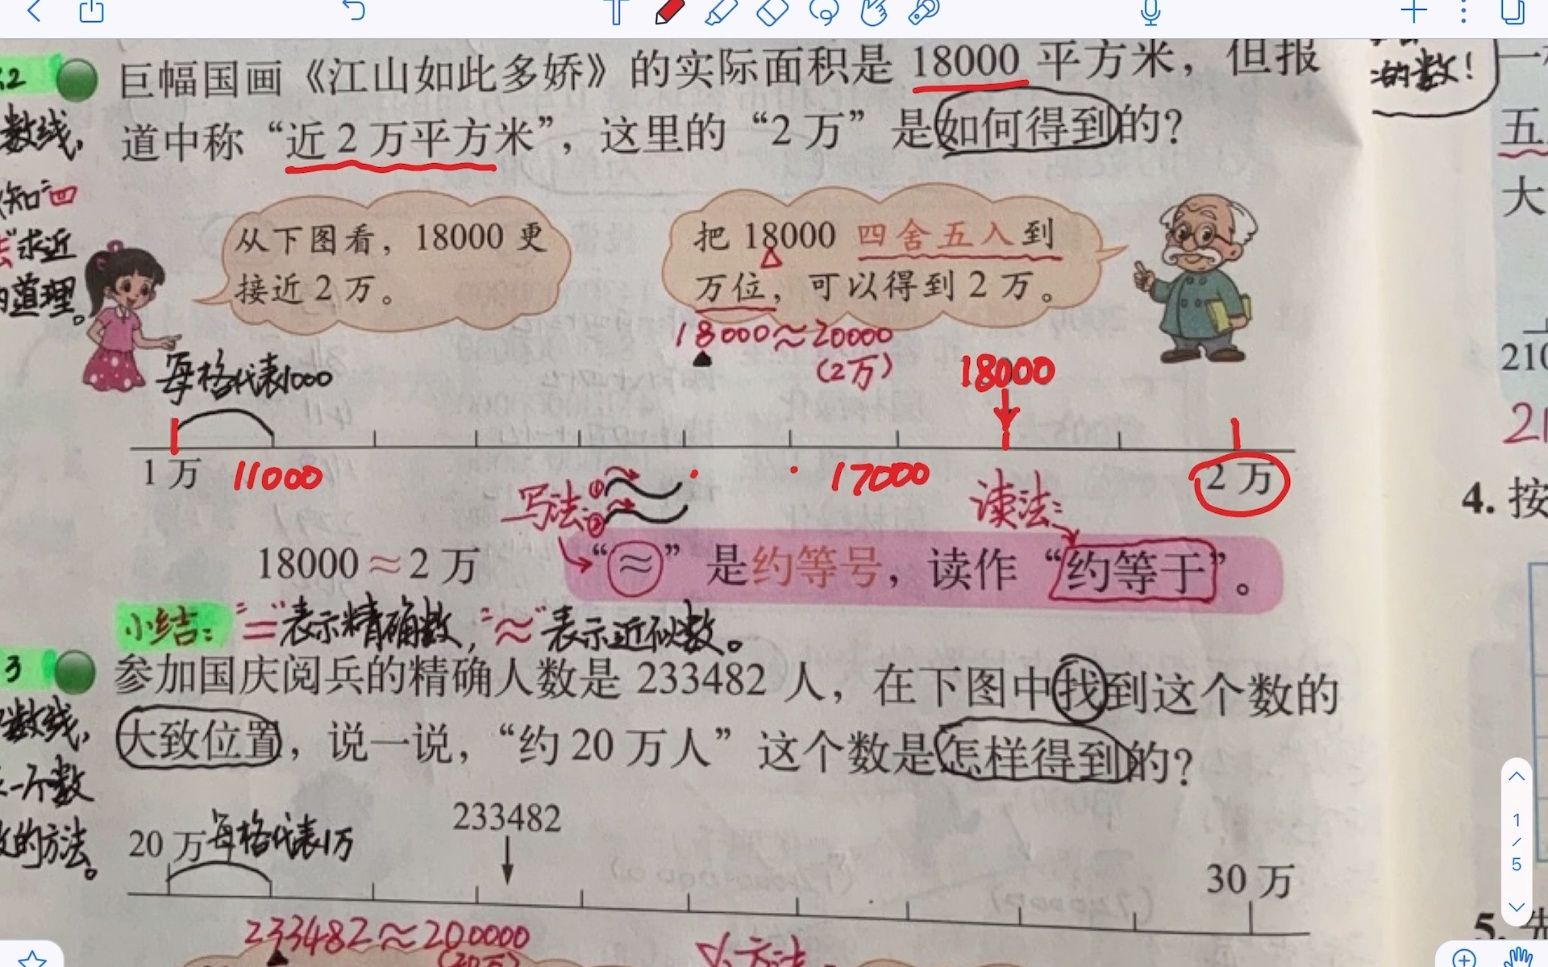 2
巨幅国画《江山如此多娇》的实际面积是 18000 平方米，但报
道中称“近 2 万平方米”，这里的“2 万”是如何得到的？
的数！
一
数线，
五
知“四
大
求近
的道理。
从下图看，18000 更
接近 2 万。
把 18000 四舍五入到
万位，可以得到 2 万。
18000≈20000
(2万)
每格代表1000
18000
1 万
11000
17000
2 万
写法：① ②
读法：
18000 ≈ 2 万
“≈” 是约等号，读作 “约等于”。
小结：“=”表示精确数，“≈”表示近似数。
4. 按
3
参加国庆阅兵的精确人数是 233482 人，在下图中找到这个数的
大致位置，说一说，“约 20 万人” 这个数是怎样得到的？
数线，
一个数
的方法。
20 万
每格代表1万
233482
30 万
233482≈200000
(20万)
方法
5. 先
210
21
1
/
5